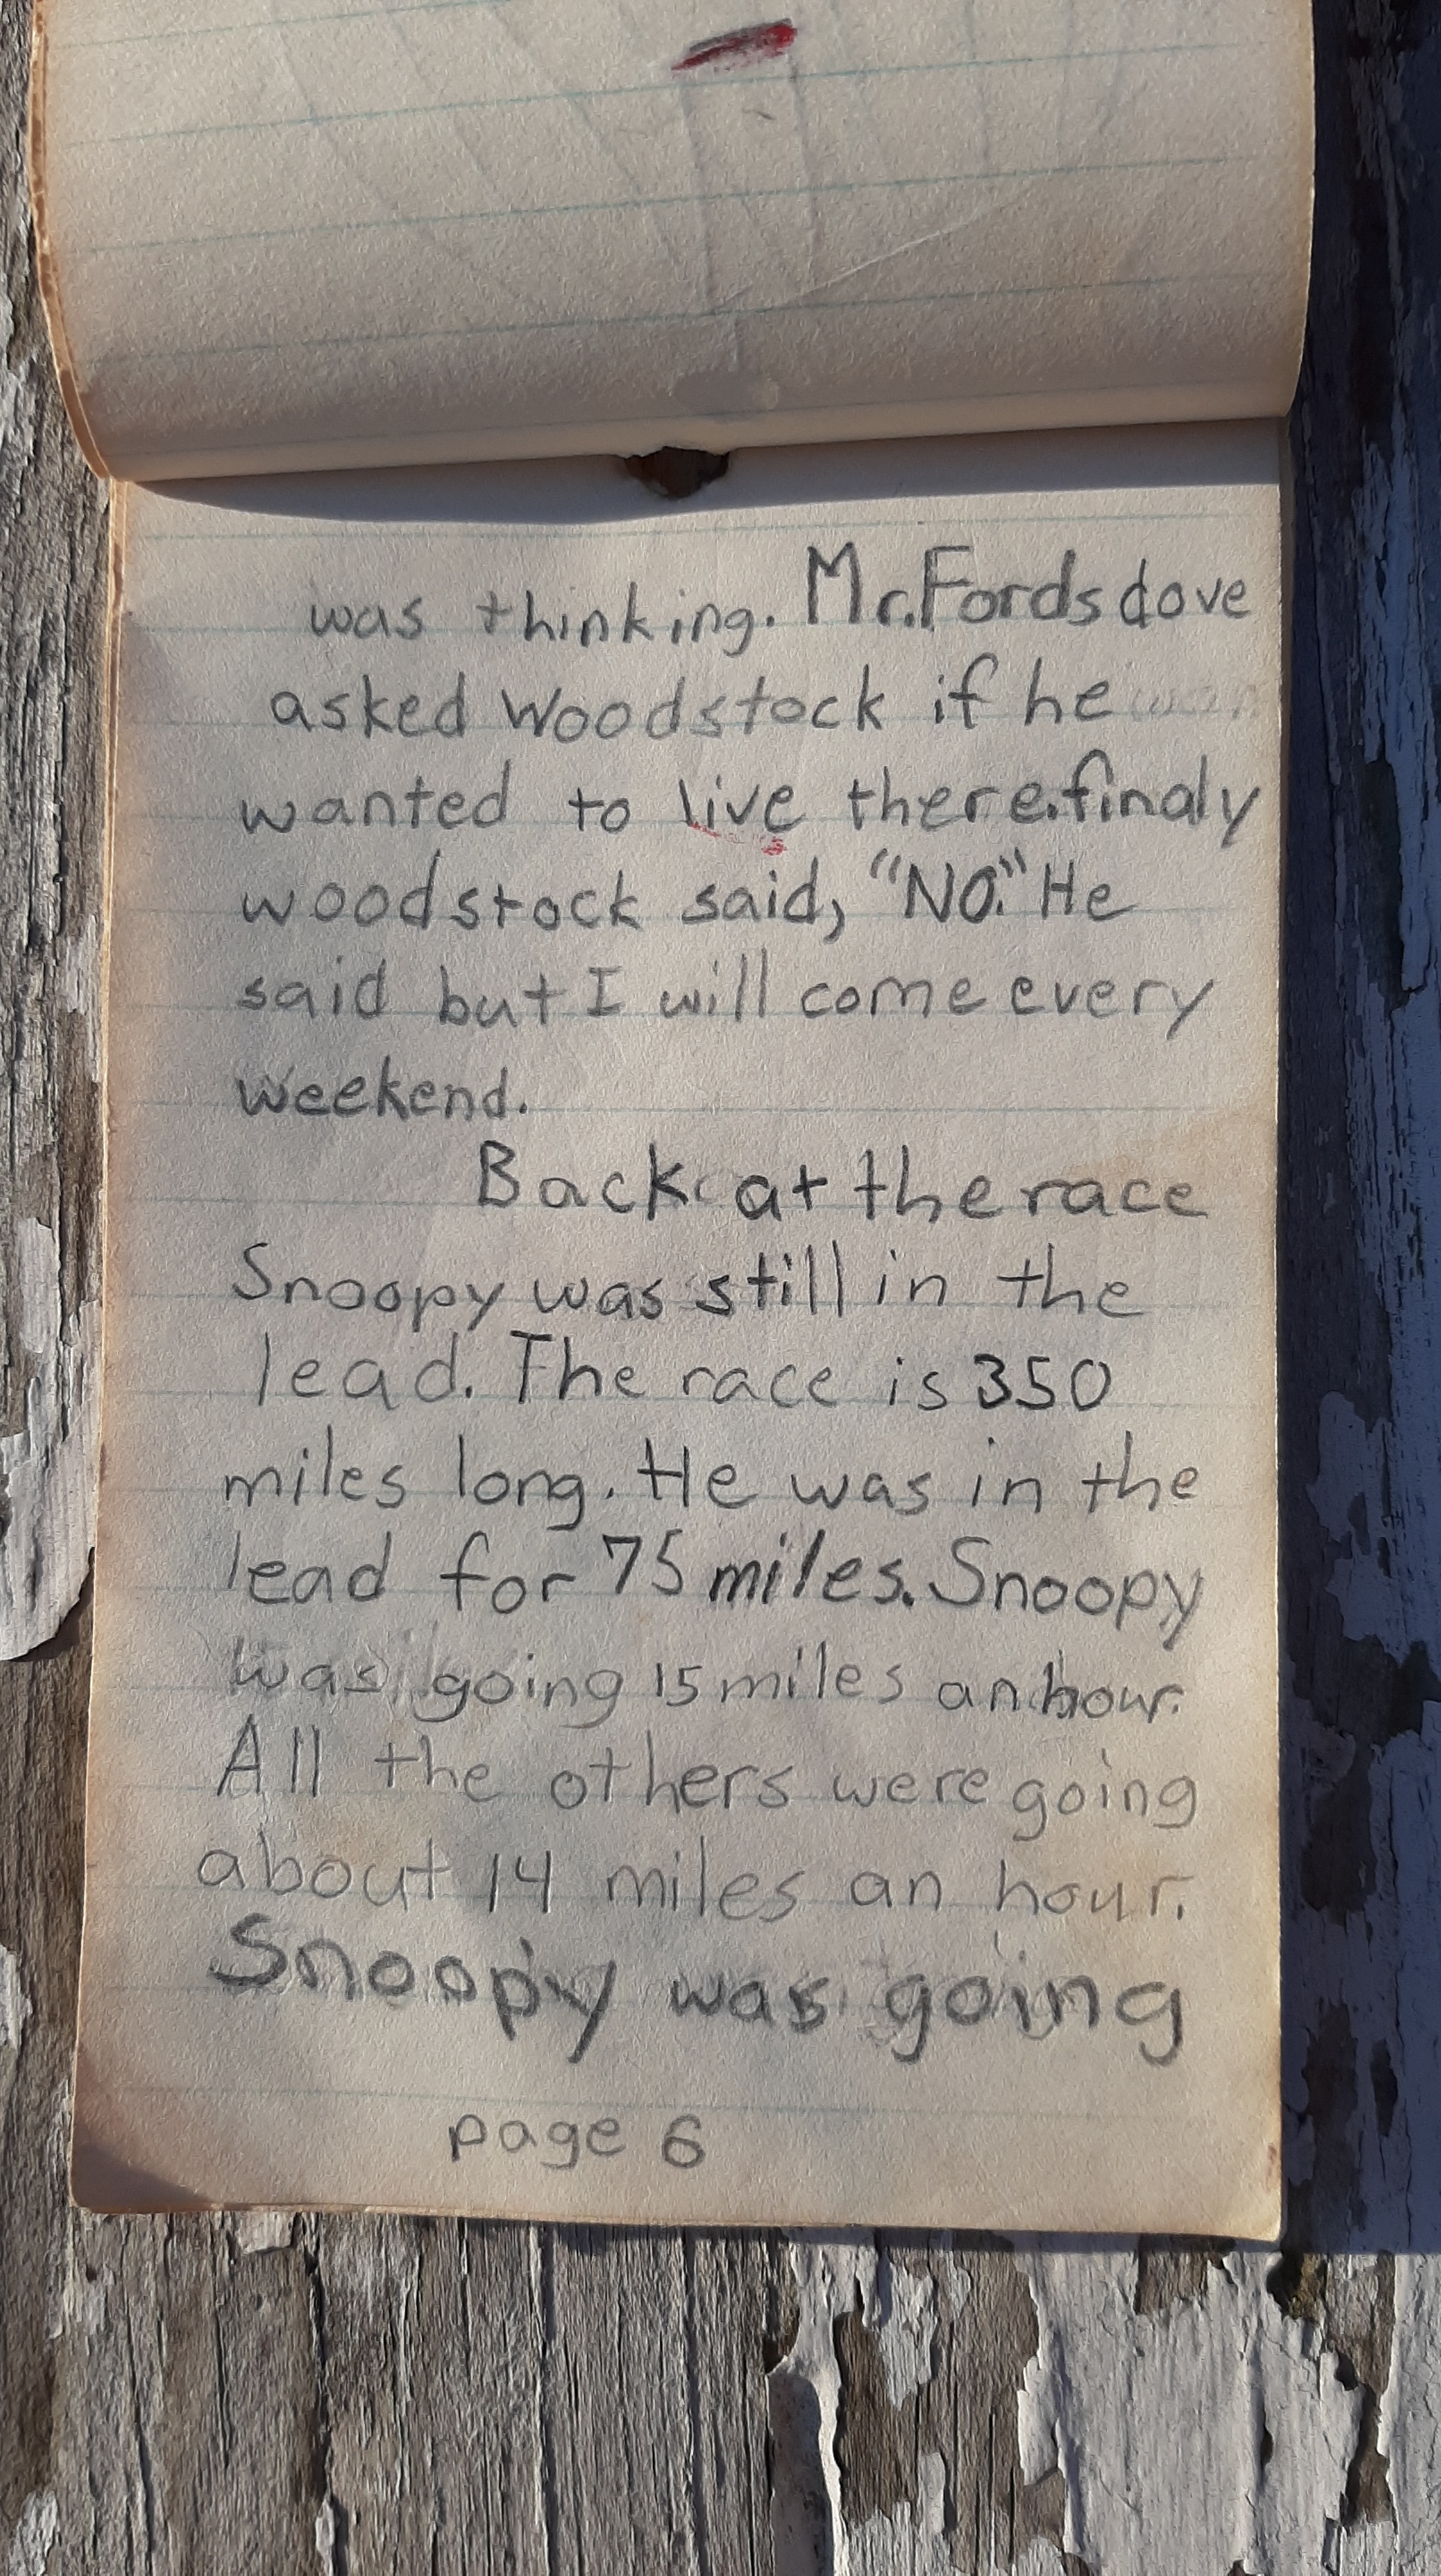 was thinking. Mr. Fords dove
asked Woodstock if he
wanted to live there. finaly
woodstock said, "NO." He
said but I will come every
weekend.
Back at the race
Snoopy was still in the
lead. The race is 350
miles long. He was in the
lead for 75 miles. Snoopy
was going 15 miles an hour.
All the others were going
about 14 miles an hour.
Snoopy was going
page 6